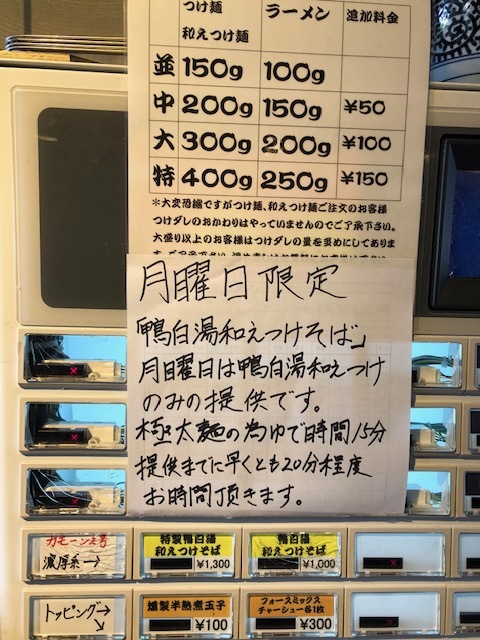 つけ麺 ラーメン 追加料金
和えつけ麺
並 150g 100g
中 200g 150g ¥50
大 300g 200g ¥100
特 400g 250g ¥150
*大変恐縮ですがつけ麺、和えつけ麺ご注文のお客様
つけダレのおかわりはやっていませんのでご了承下さい。
大盛り以上のお客様はつけダレの量を多めにしてありま
月曜日限定
「鴨白湯和えつけそば」
月曜日は鴨白湯和えつけ
のみの提供です。
極太麺の為ゆで時間15分
提供までに早くとも20分程度
お時間頂きます。
カモーン2号
濃厚系→
特製鴨白湯
和えつけそば
¥1,300
鴨白湯
和えつけそば
¥1,000
トッピング→
↘
燻製半熟煮玉子
¥100
フォースミックス
チャーシュー各1枚
¥300